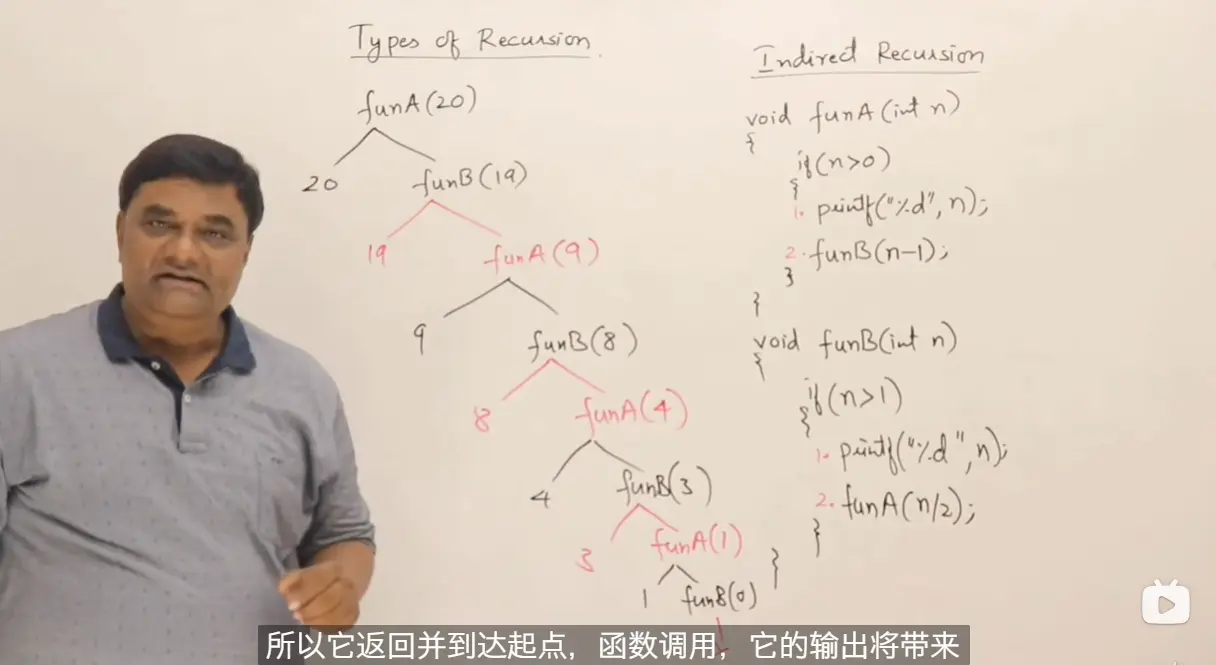 Types of Recursion
funA(20)
20 funB(19)
19 funA(9)
9 funB(8)
8 funA(4)
4 funB(3)
3 funA(1)
1 funB(0)
Indirect Recursion
void funA(int n)
{
if(n>0)
{
1. printf("%d", n);
2. funB(n-1);
}
}
void funB(int n)
{
if(n>1)
{
1. printf("%d", n);
2. funA(n/2);
}
}
所以它返回并到达起点，函数调用，它的输出将带来